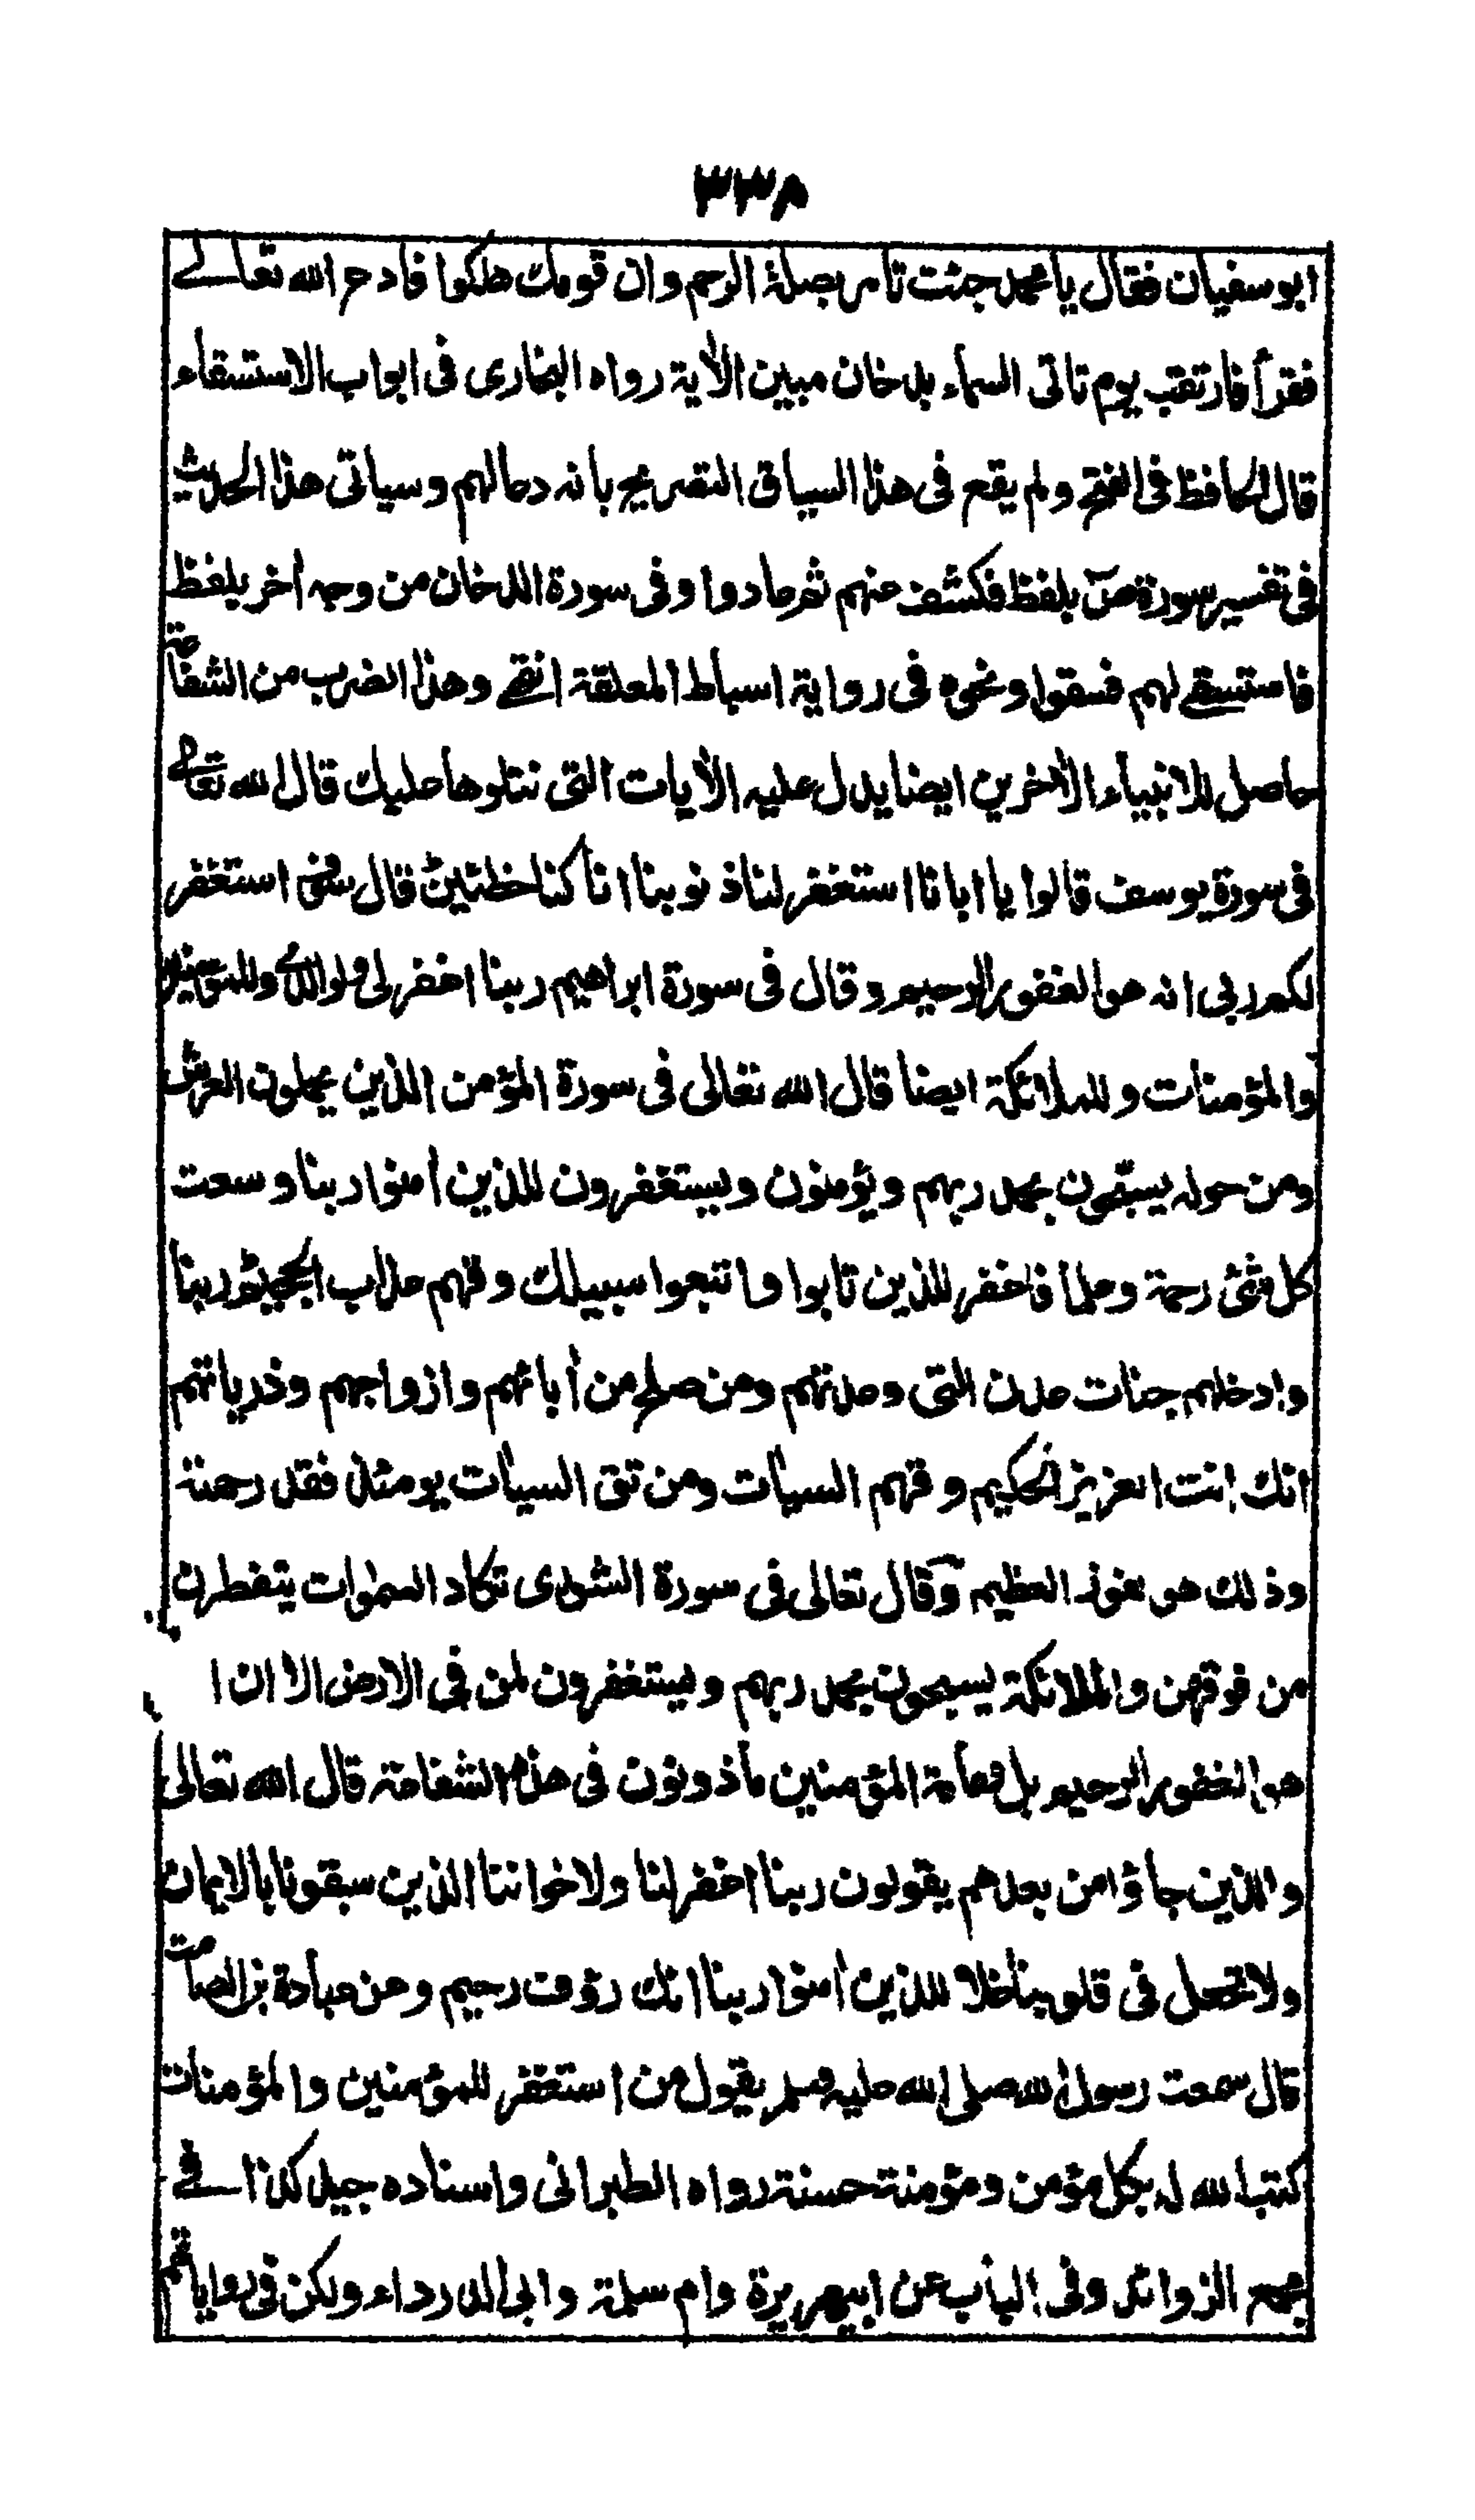 ٣٣٨
ابو سفيان فقال يا محمد جئت تامر بصلة الرحم وان قومك هلكوا فادع الله تعالے
فقرأ فارتقب يوم تاتى السماء بدخان مبين الأية رواه البخارى فى ابواب الاستسقاء
قال الحافظ فى الفتح ولم يقع فى هذا السياق التصريح بانه دعا لهم وسياتى هذا الحديث
فى تفسير سورة صٓ بلفظ فكشف عنهم ثم عادوا وفى سورة الدخان من وجه أخر بلفظ
فاستسقے لهم فسقوا ونحوه فى رواية اسباط المعلقة انتهے وهذا الضرب من الشفاعة
حاصل للانبياء الأخرين ايضا يدل عليه الأيات التى نتلوها عليك قال الله تعالے
فى سورة يوسف قالوا يا ابانا استغفر لنا ذنوبنا انا كنا خطئين قال سوف استغفر
لكم ربى انه هو الغفور الرحيم وقال فى سورة ابراهيم ربنا اغفر لى ولوالدى وللمؤمنين
والمؤمنات وللملائكة ايضا قال الله تعالى فى سورة المؤمن الذين يحملون العرش
ومن حوله يسبحون بحمد ربهم ويؤمنون ويستغفرون للذين أمنوا ربنا وسعت
كل شئ رحمة وعلما فاغفر للذين تابوا واتبعوا سبيلك وقهم عذاب الجحيم ربنا
وادخلهم جنات عدن التى وعدتهم ومن صلح من أبائهم وازواجهم وذرياتهم
انك انت العزيز الحكيم وقهم السيأت ومن تق السيأت يومئذ فقد رحمته
وذلك هو الفوز العظيم وقال تعالى فى سورة الشورى تكاد السموات يتفطرن
من فوقهن والملائكة يسبحون بحمد ربهم ويستغفرون لمن فى الارض الا ان ا
هو الغفور الرحيم بل عامة المؤمنين مأذونون فى هذه الشفاعة قال الله تعالى
والذين جاؤا من بعدهم يقولون ربنا اغفر لنا ولاخواننا الذين سبقونا بالايمان
ولا تجعل فى قلوبنا غلا للذين أمنوا ربنا انك رؤف رحيم وعن عبادة بن الصامت
قال سمعت رسول الله صلى الله عليه وسلم يقول من استغفر للمؤمنين والمؤمنات
كتب الله له بكل مؤمن ومؤمنة حسنة رواه الطبرانى واسناده جيد كذا فے
مجمع الزوائد وفى الباب عن ابى هريرة وام سلمة وابى الدرداء ولكن فى رواياتهم